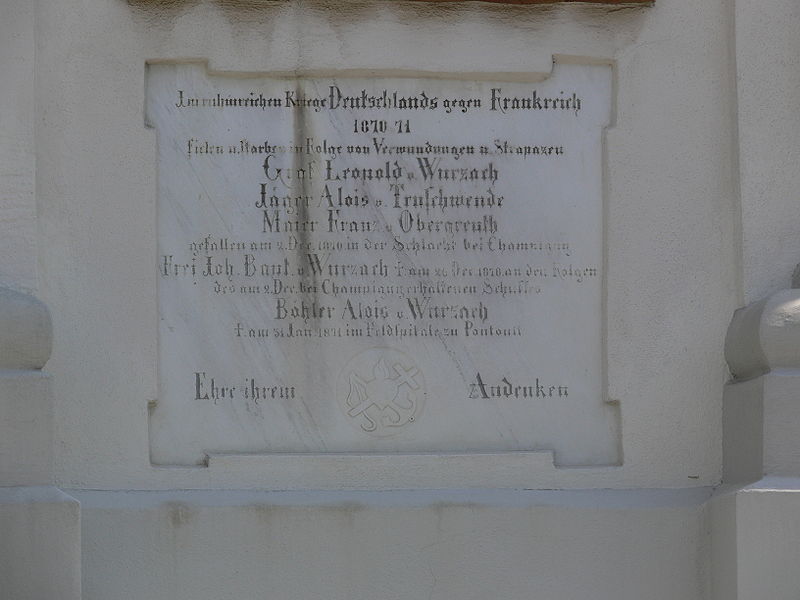 Im ruhmreichen Kriege Deutschlands gegen Frankreich
1870-71
fielen u. starben in Folge von Verwundungen u. Strapazen
Graf Leopold v. Wurzach
Jäger Alois v. Truschwende
Maier Franz v. Obergreuth
gefallen am 2. Dec. 1870 in der Schlacht bei Champigny
Frei Joh. Bapt. v. Wurzach † am 26 Dec. 1870 an den Folgen
des am 2. Dec. bei Champigny erhaltenen Schusses
Böhler Alois v. Wurzach
† am 31 Jan. 1871 im Feldspitale zu Pontoult
Ehre ihrem Andenken